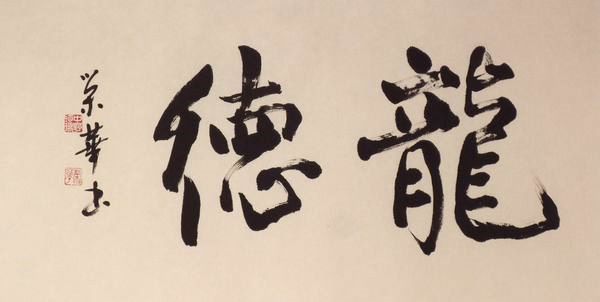 龍德
榮華书